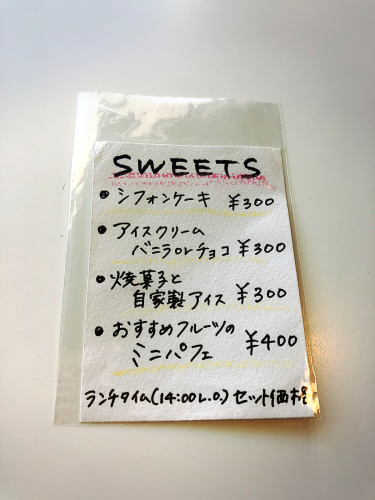 SWEETS
• シフォンケーキ ¥300
• アイスクリーム
バニラorチョコ ¥300
• 焼菓子と
自家製アイス ¥300
• おすすめフルーツの
ミニパフェ ¥400
ランチタイム(14:00L.O.)セット価格